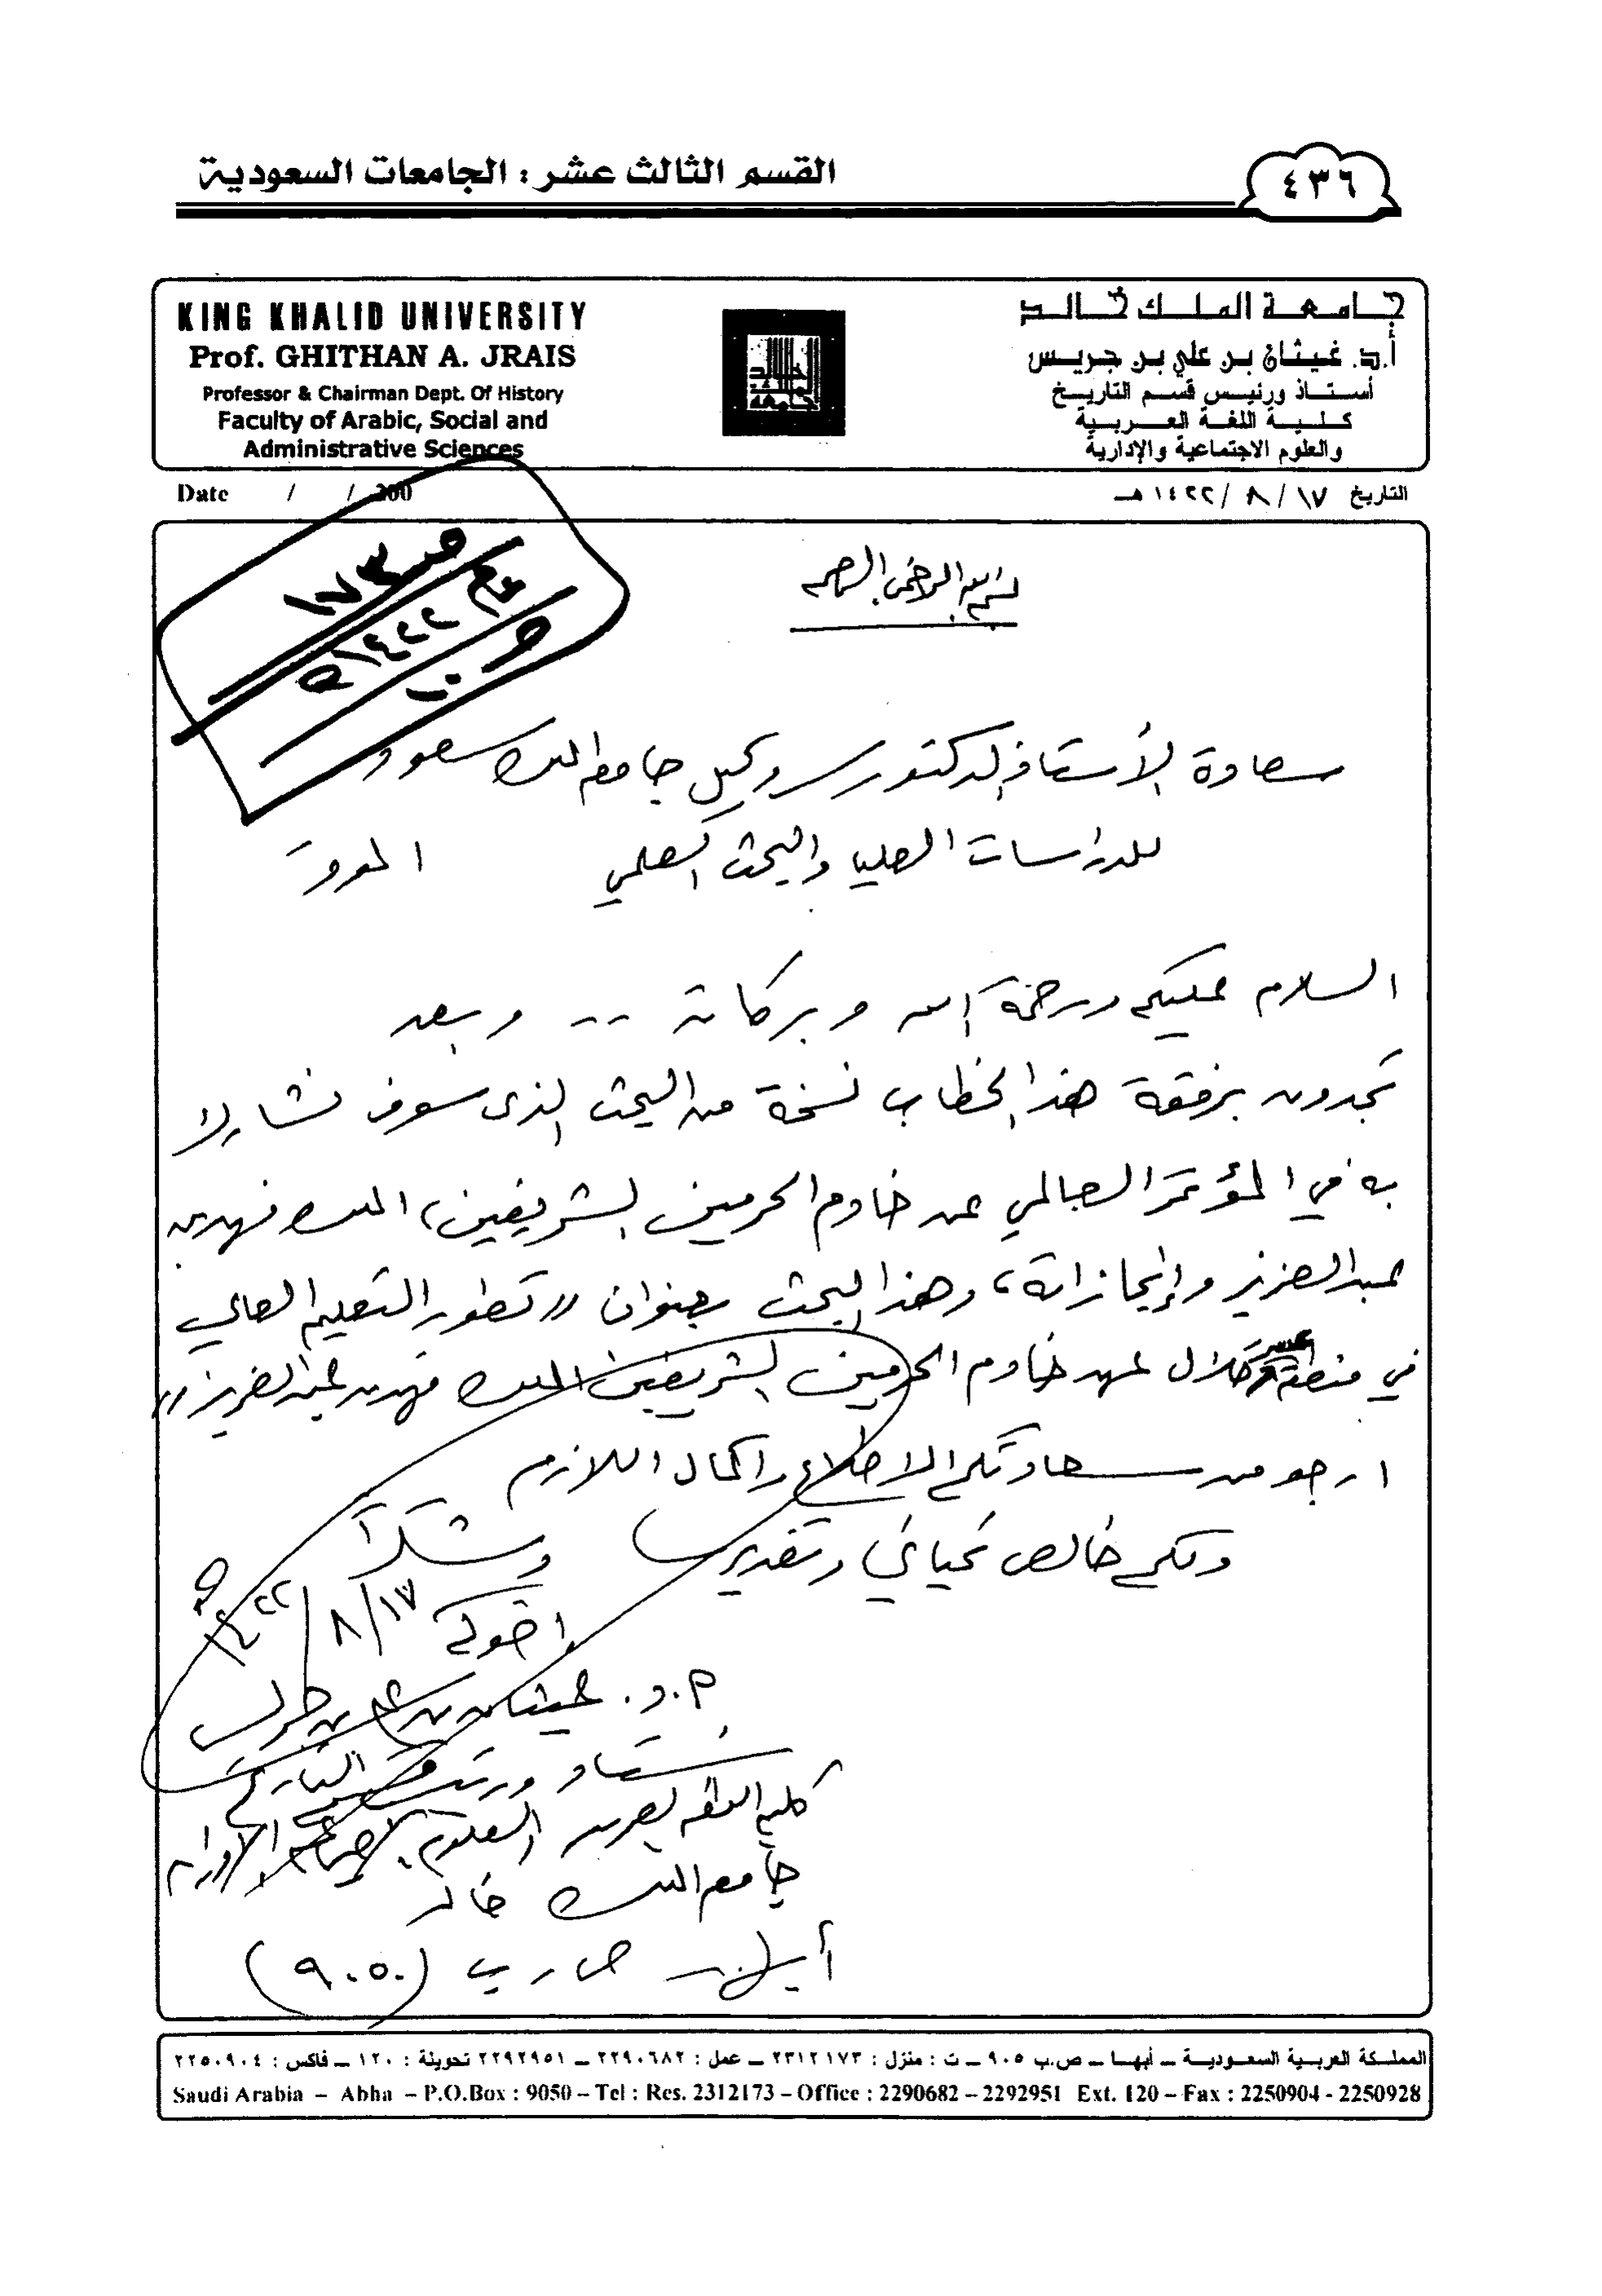 القسم الثالث عشر : الجامعات السعودية
٤٣٦
KING KHALID UNIVERSITY
Prof. GHITHAN A. JRAIS
Professor & Chairman Dept. Of History
Faculty of Arabic, Social and
Administrative Sciences
جامعة الملك خالد
أ.د. غيثان بن علي بن جريس
أستاذ ورئيس قسم التاريخ
كلية اللغة العربية
والعلوم الاجتماعية والإدارية
Date / / 200
التاريخ ١٧ / ٨ / ١٤٢٢ هـ
ص ١٧٣
عام ١٤٢٢هـ
بسم الله الرحمن الرحيم
سعادة الأستاذ الدكتور وكيل جامعة الملك سعود
للدراسات العليا والبحث العلمي الموقر
السلام عليكم ورحمة الله وبركاته .. وبعد
تجدون برفقة هذا الخطاب نسخة من البحث الذي سوف نشارك
به في المؤتمر العالمي عن خادم الحرمين الشريفين، الملك فهد بن
عبدالعزيز وإنجازاته، وهذا البحث بعنوان "تطور التعليم العالي
في منطقة عسير خلال عهد خادم الحرمين الشريفين الملك فهد بن عبدالعزيز"
ارجو من سعادتكم الاطلاع واكمال اللازم
ولكم خالص تحياتي وتقديري وشكراً
اخوكم ١٧/٨/١٤٢٢هـ
أ.د. غيثان بن علي بن جريس
أستاذ ورئيس قسم التاريخ
كلية اللغة العربية والعلوم الاجتماعية والإدارية
جامعة الملك خالد
أبها ـ ص.ب (٩٠٥٠)
المملكة العربية السعودية ــ أبها ــ ص.ب ٩٠٥ ــ ت : منزل : ٢٣١٢١٧٣ ــ عمل : ٢٢٩٠٦٨٢ ــ ٢٢٩٢٩٥١ تحويلة : ١٢٠ ــ فاكس : ٢٢٥٠٩٠٤
Saudi Arabia – Abha – P.O.Box : 9050 – Tel : Res. 2312173 – Office : 2290682 – 2292951 Ext. 120 – Fax : 2250904 - 2250928